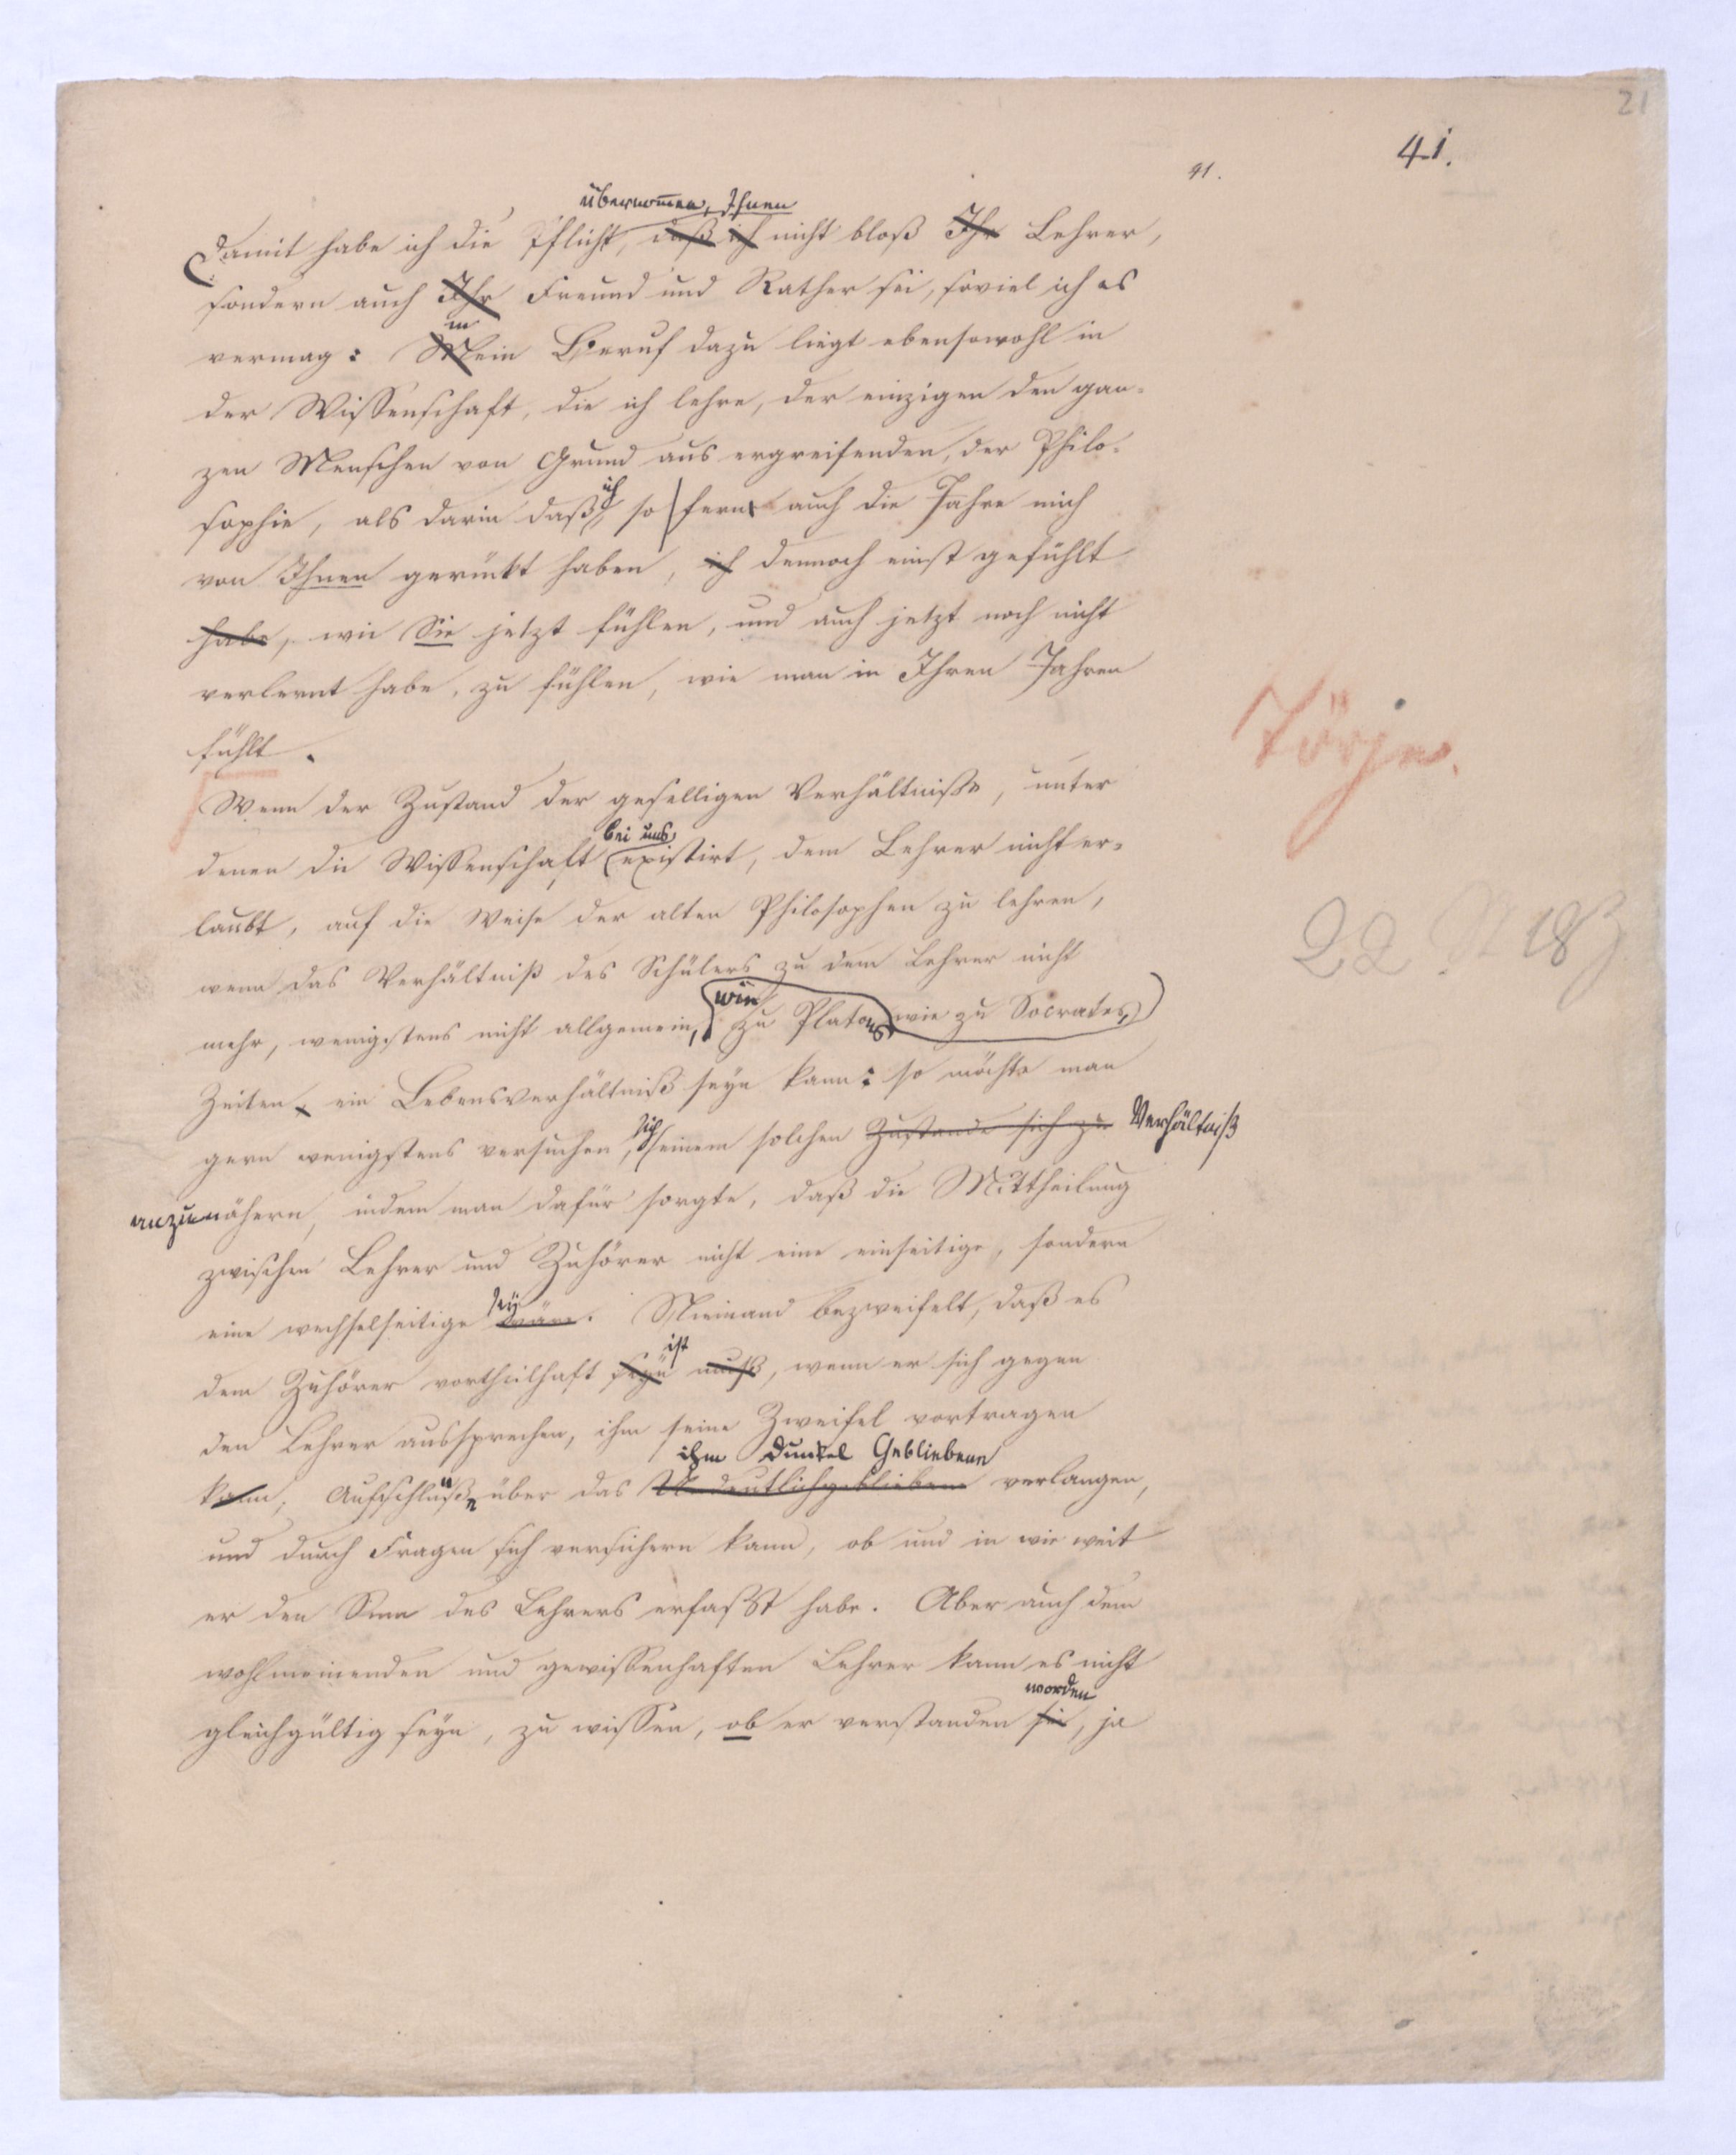 21
41.
41.
übernom̅en, Ihnen
Damit habe ich die Pflicht, daß ich nicht bloß Ihr Lehrer,
sondern auch Ihr Freund und Rather sei, soviel ich es
m
vermag: Mein Beruf dazu liegt ebensowohl in
der Wissenschaft, die ich lehre, der einzigen den gan-
zen Menschen von Grund aus ergreifenden, der Philo-
ich
sophie, als darin daß, so fern auch die Jahre mich
von Ihnen gerückt haben, ich dennoch einst gefühlt
habe, wie Sie jetzt fühlen, und auch jetzt noch nicht
verlernt habe, zu fühlen, wie man in Ihren Jahren
fühlt.
Wenn der Zustand der geselligen Verhältnisse, unter
bei uns
denen die Wissenschaft existirt, dem Lehrer nicht er-
laubt, auf die Weise der alten Philosophen zu lehren,
wenn das Verhältniß des Schülers zu dem Lehrer nicht
wie
mehr, wenigstens nicht allgemein, zu Platons wie zu Socrates,
Zeiten ein Lebensverhältniß seyn kann: so möchte man
sich
gern wenigstens versuchen, einem solchen Zustande sich zu Verhältniß
anzunähern, indem man dafür sorgte, daß die Mittheilung
zwischen Lehrer und Zuhörer nicht eine einseitige, sondern
sey
eine wechselseitige wäre. Niemand bezweifelt, daß es
ist
dem Zuhörer vortheilhaft seyn muß, wenn er sich gegen
den Lehrer aussprechen, ihm seine Zweifel vortragen
ihm Dunkel Gebliebene
kann, Aufschlüße über das Undeutlichgebliebene verlangen,
und durch Fragen sich versichern kann, ob und in wie weit
er den Sinn des Lehrers erfaßt habe. Aber auch dem
wohlmeinenden und gewissenhaften Lehrer kann es nicht
worden
gleichgültig seyn, zu wissen, ob er verstanden sei, ja
22